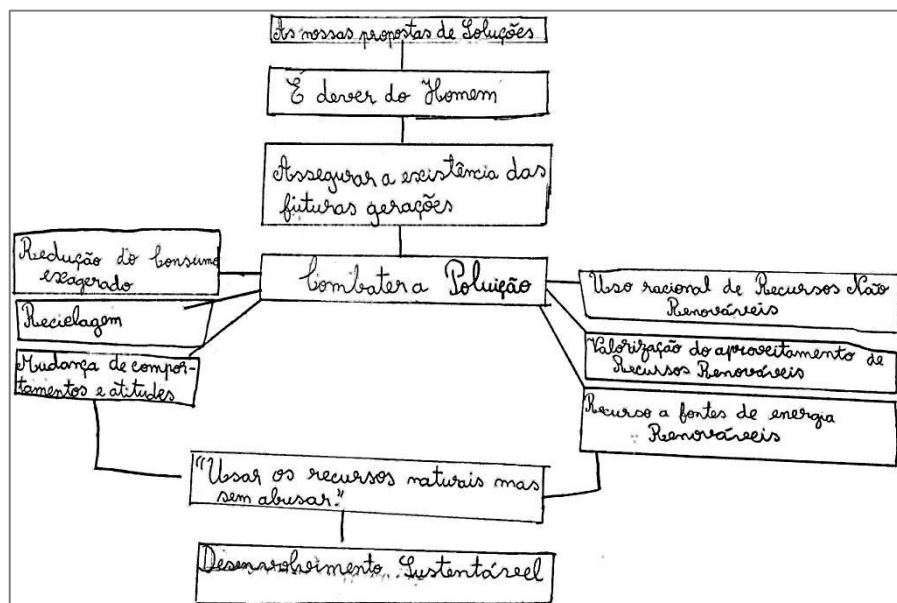 As nossas propostas de Soluções
É dever do Homem
Assegurar a existência das
futuras gerações
Combater a Poluição
Redução do Consumo
exagerado
Reciclagem
Mudança de compor-
tamentos e atitudes
Uso racional de Recursos Não
Renováveis
Valorização do aproveitamento de
Recursos Renováveis
Recurso a fontes de energia
Renováveis
"Usar os recursos naturais mas
sem abusar."
Desenvolvimento Sustentável